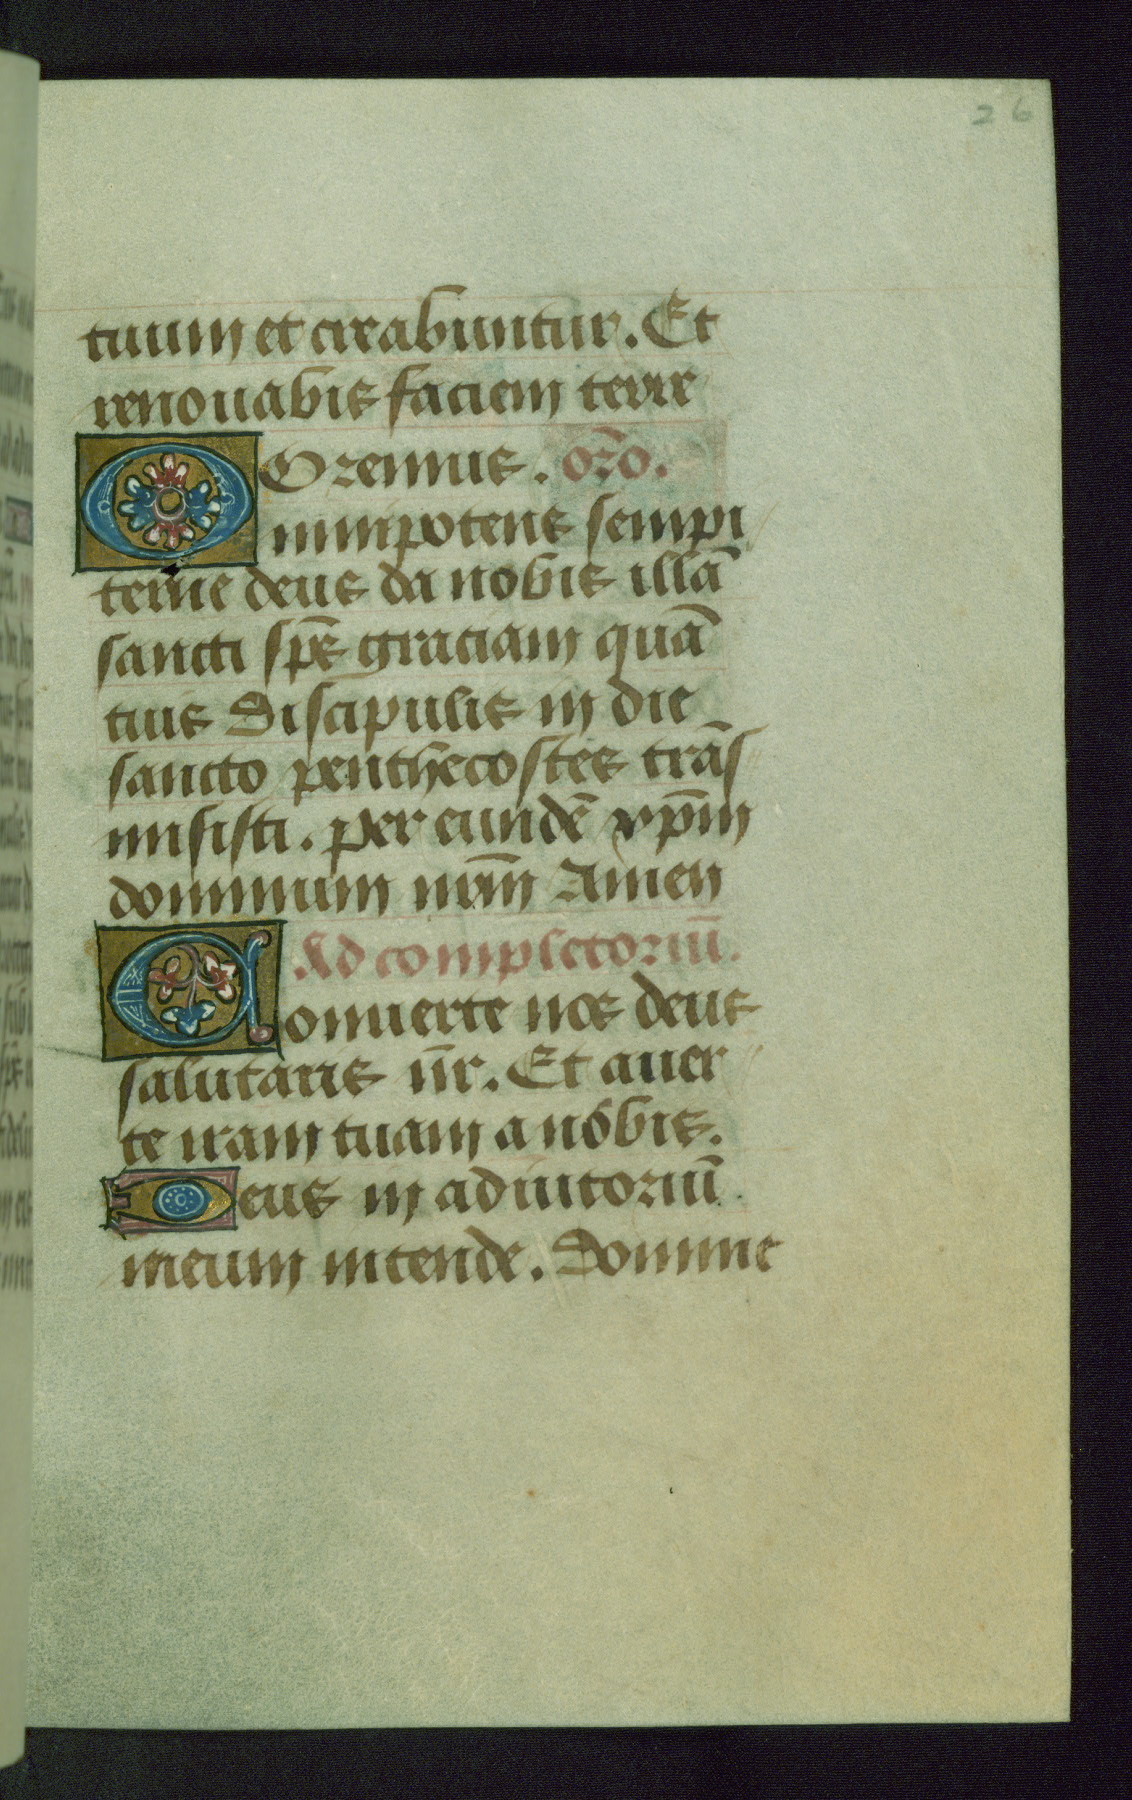 26
tuum et crrabuntur. Et
renouabis faciem terre
Oremus. or̄o.
Omnipotens sempi
terne deus da nobis illā
sancti sp̄s graciam quā
tuis discipulis in die
sancto penthecostes trās
misisti. per eundē xp̄m
dominum nr̄m Amen
Ad completoriū.
Conuerte nos deus
salutaris n̄r. Et auer
te iram tuam a nobis.
Deus in adiutoriū
meum intende. Domine